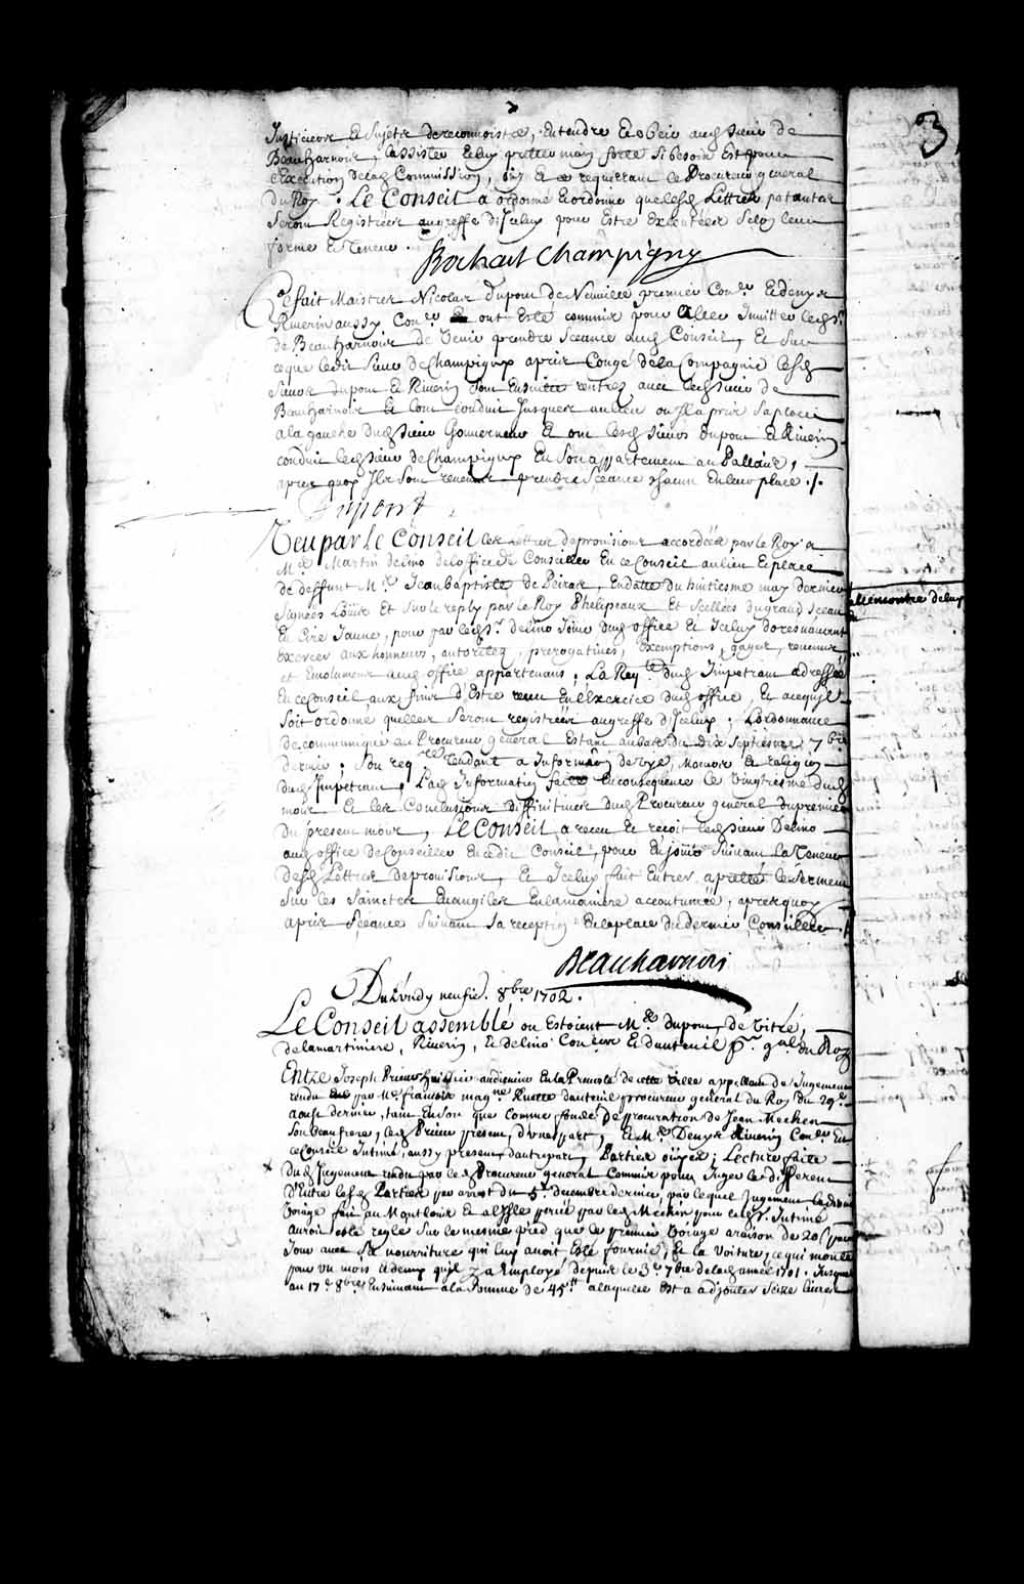 3
Justiciers et Sujets de reconnoistre, Entendre Et obeir audt Sieur de
Beauharnois, L'assister Et luy prester main forte Si besoin Est pour
L'Execution de lad Commission, oüy Et ce requerant le Procureur general
du Roy. Le Conseil a ordonné Et ordonne que lesd Lettres patantes
Seront Registrées au greffe d'Iceluy pour Estre Executées Selon leur
forme Et Teneur.
Bochart Champigny
Ce fait Maistres Nicolas dupont de Neuville premier Coner. Et denys
Riverin aussy Coner ont Esté commis pour Aller Inviter ledt Sr.
de Beauharnois de Venir prendre Sceance aud Conseil, Et Sur
ce que ledit Sieur de Champigny a pris Congé de la Compagnie lesd
Sieurs dupont Et Riverin Sont Ensuitte rentrez avec led Sieur de
Beauharnois Et l'ont conduit Jusques au lieu ou Il a pris Sa place
a la gauche dud Sieur Gouverneur Et ont lesd Sieurs dupont Et Riverin
conduit led Sieur de Champigny En Son appartement au Pallais,
apres quoy Ils Sont revenus prendre Sceance chacun En leur place ./.
Dupont
Veu par Le Conseil les lettres de provisions accordées par le Roy a
Me. Martin delino de l'office de Conseiller En ce Conseil au lieu Et place
de deffunt Me. Jean baptiste de Peiras, En datte du huitiesme may dernier
Signées Loüis Et Sur le reply par le Roy Phelipeaux Et Scellées du grand Sceau
En Cire Jaune, pour par led Sr. delino Joüir dud office Et Iceluy doresnavant
Exercer aux honneurs, autoritez, prerogatives, Exemptions, gages, revenus
et Emolumens aud office appartenans; La Reqte. dud Impetrant adressée
En ce Conseil aux fins d'Estre receu En l'Exercice dud office, Et a ce qu'Il
Soit ordonné qu'elles Seront registrées au greffe d'Iceluy; L'ordonnance
de communiqué au Procureur general Estant au bas du dix Septiesme 7bre
dernier; Son reqre tendant a Informaõn de vye, Moeurs Et religion
dud Impetrant; Lad Information faite En consequence le vingtiesme dud
mois Et les Conclusions diffinitives dud Procureur general du premier
du present mois, Le Conseil a receu Et reçoit led Sieur Delino
aud office de Conseiller En cedit Conseil, pour En joüir Suivant La Teneur
desd Lettres de provisions, Et Iceluy fait Entrer a presté le Serment
Sur les Saincts Evangiles En la maniere accoutumée, apres quoy
a pris Sceance Suivant Sa reception En la place du dernier Conseiller ./.
Beauharnois
Du Lundy neufie. 8bre 1702.
Le Conseil assemblé ou Estoient Me. dupont, de Vitré,
de la martiniere, Riverin, Et delino Coners Et dauteuil pr. gnal du Roy
Entre Joseph Prieur huissier audiencier En la Prevosté de cette ville appellant de Jugement
rendu par Me françois magne Ruette dauteuil procureur general du Roy du 29e.
aoust dernier, tant En Son que comme fondé de procuration de Jean Mechin
Son beaufrere, led Prieur present, d'une part, Et Me. Denys Riverin Coner En
ce Conseil Intimé, aussy present d'autre part, Parties oüyes; Lecture faite
dud Jugement rendu par led Procureur general Commis pour Juger les differens
d'Entre lesd Parties par arrest du 5e. decembre dernier, par lequel Jugement le
voiage fait au Montloüis Et a l'Isle percée par led Mechin pour led Sr. Intimé
auroit esté reglé Sur le mesme pied que le premier voiage a raison de 20s par
Jour avec Sa nourriture qui luy avoit Esté fournie, Et la voiture, ce qui monte
pour un mois Et demy qu'Il y a Employé depuis le 3e 7bre de lad année 1701. Jusques
au 17e 8bre Ensuivant a la Somme de 45tt a laquelle Est a adjouter Seize livres